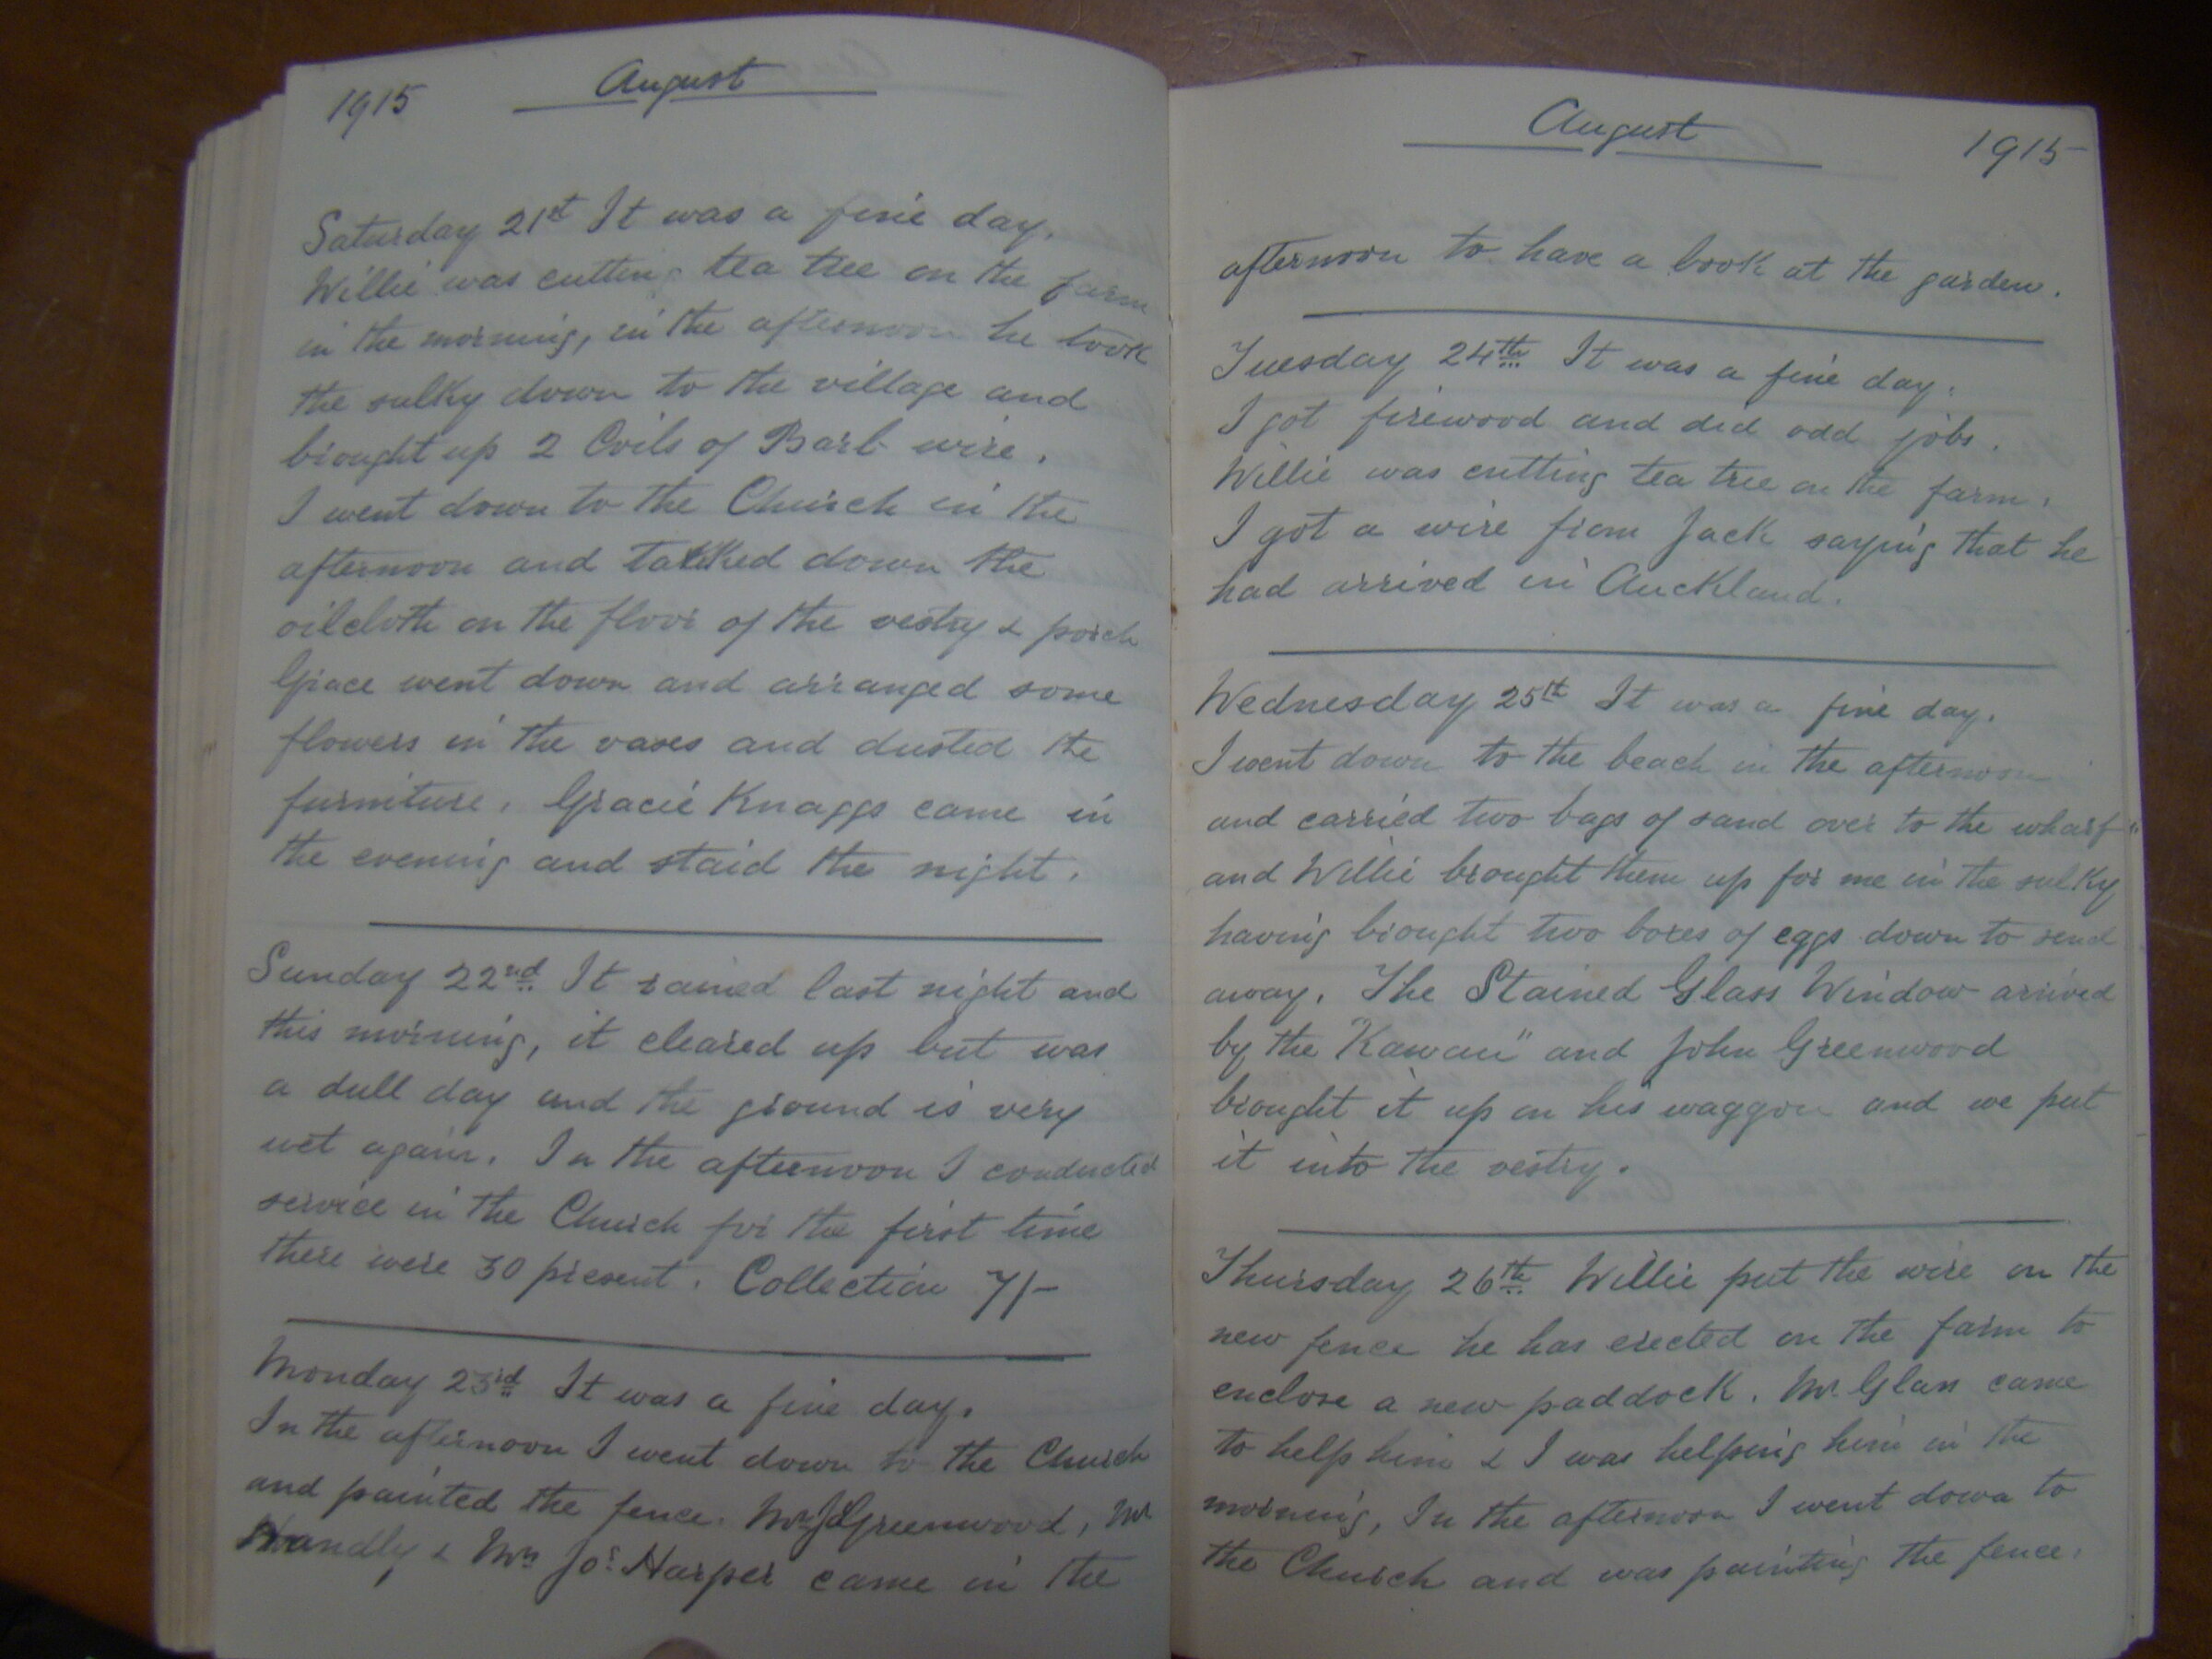 1915 August
Saturday 21st It was a fine day.
Willie was cutting tea tree on the farm
in the morning, in the afternoon he took
the sulky down to the village and
brought up 2 Coils of Barb wire.
I went down to the Church in the
afternoon and tackked down the
oilcloth on the floor of the vestry & porch
Grace went down and arranged some
flowers in the vases and dusted the
furniture. Gracie Knaggs came in
the evening and staid the night.
Sunday 22nd It rained last night and
this morning, it cleared up but was
a dull day and the ground is very
wet again. In the afternoon I conducted
service in the Church for the first time
there were 30 present. Collection 7/-
Monday 23rd It was a fine day.
In the afternoon I went down to the Church
and painted the fence. Greenwood, Mr
& Mrs Jos. Harper came in the
August 1915
afternoon to have a look at the garden.
Tuesday 24th It was a fine day.
I got firewood and did odd jobs.
Willie was cutting tea tree on the farm.
I got a wire from Jack saying that he
had arrived in Auckland.
Wednesday 25th It was a fine day.
I went down to the beach in the afternoon
and carried two bags of sand over to the wharf
and Willie brought them up for me in the sulky
having brought two boxes of eggs down to send
away. The Stained Glass Window arrived
by the "Kawau" and John Greenwood
brought it up on his waggon and we put
it into the vestry.
Thursday 26th Willie put the wire on the
new fence he has erected on the farm to
enclose a new paddock. Mr. Glass came
to help him & I was helping him in the
morning, In the afternoon I went down to
the Church and was painting the fence.